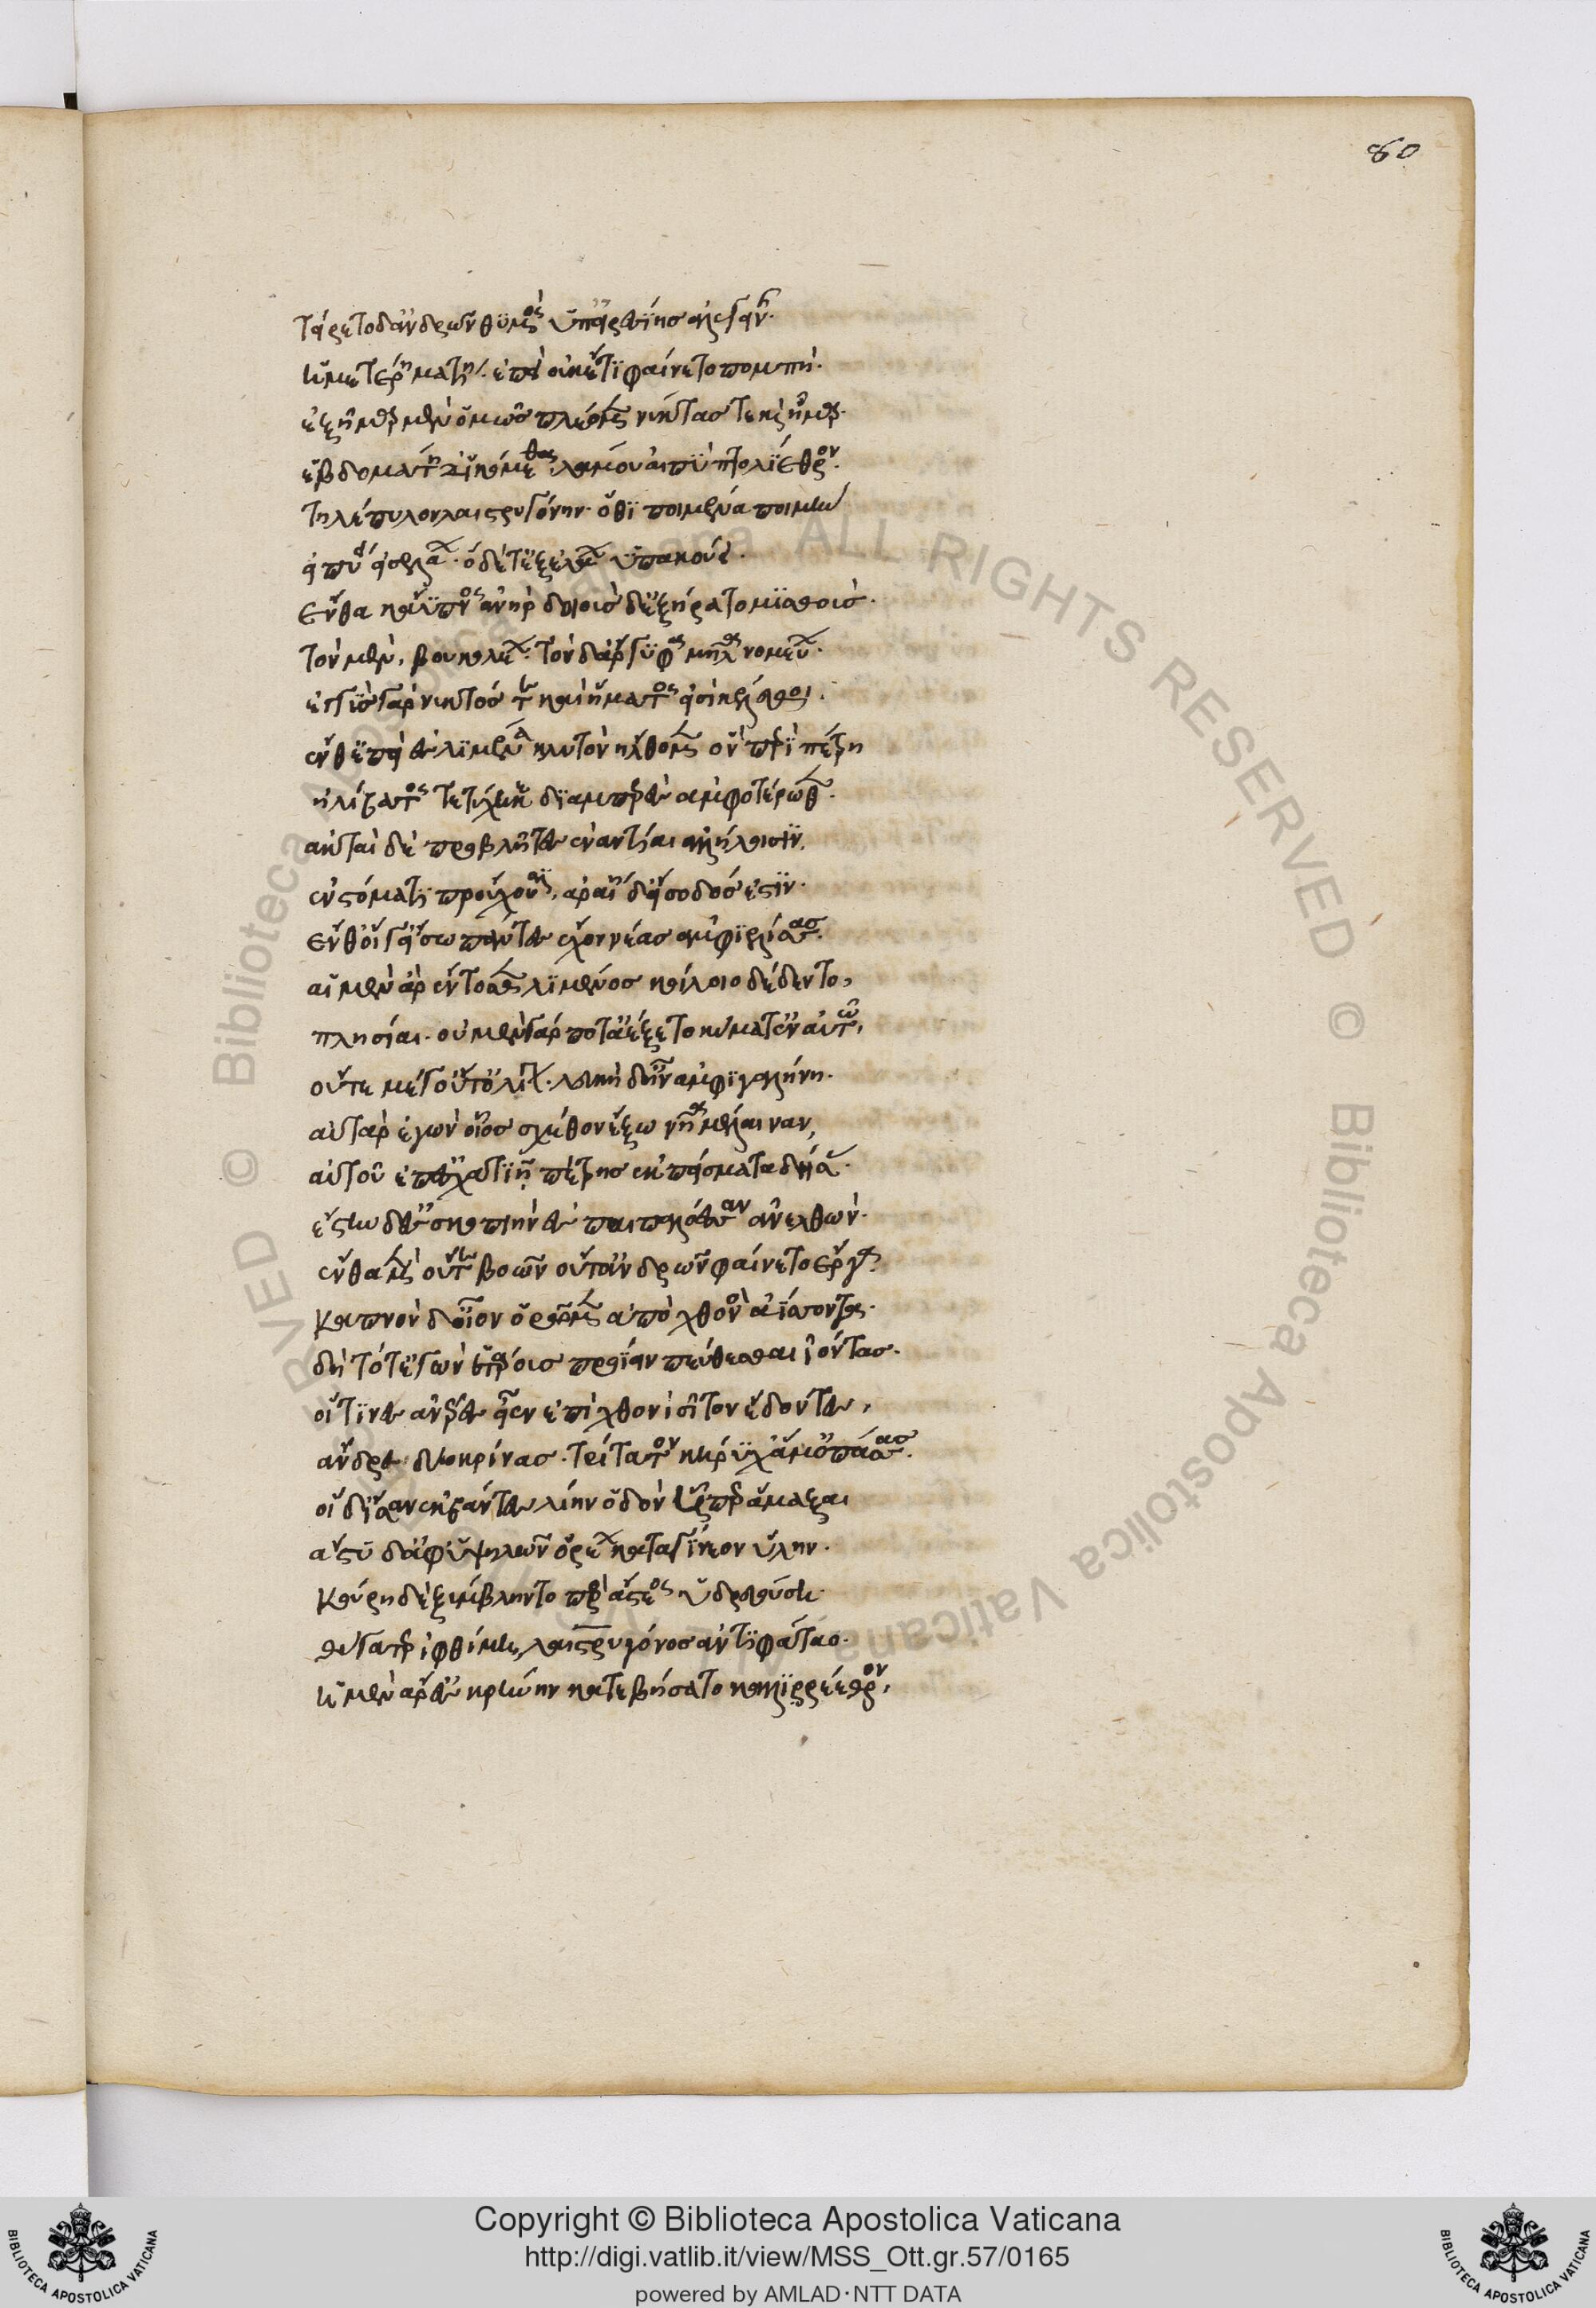 80
τείρετο δ' ἀνδρῶν θυμὸς ὑπ' εἰρεσίης ἀλεγεινῆς.
ἡμετέρῃ ματίῃ. ἐπεὶ οὐκέτι φαίνετο πομπή.
ἑξῆμαρ μὲν ὁμῶς πλέομεν νύκτας τε καὶ ἦμαρ.
ἑβδομάτῃ δ' ἱκόμεθα λάμου αἰπὺ πτολίεθρον.
τηλέπυλον λαιστρυγόνην. ὅθι ποιμένα ποιμὴν
ἠπύει εἰσελάων. ὁ δέ τ' ἐξελάων ὑπακούει.
ἔνθα κ' ἄϋπνος ἀνὴρ δοιοὺς ἐξήρατο μισθούς.
τὸν μὲν, βουκολέων. τὸν δ' ἄργυφα μῆλα νομεύων.
ἐγγὺς γὰρ νυκτός τε καὶ ἤματός εἰσι κέλευθοι.
ἔνθ' ἐπεὶ ἐς λιμένα κλυτὸν ἤλθομεν ὃν πέρι πέτρη
ἠλίβατος τετύχηκε διαμπερὲς ἀμφοτέρωθεν.
ἀκταὶ δὲ προβλῆτες ἐναντίαι ἀλλήλῃσιν.
ἐν στόματι προὔχουσιν, ἀραιὴ δ' εἴσοδός ἐστιν.
ἔνθ' οἵγ' εἴσω πάντες ἔχον νέας ἀμφιελίσσας.
αἱ μὲν ἄρ' ἔντοσθεν λιμένος κοίλοιο δέδεντο,
πλησίαι. οὐ μὲν γάρ ποτ' ἀέξετο κῦμά γ' ἐν αὐτῷ,
οὔτε μέγ' οὔτ' ὀλίγον. λευκὴ δ' ἦν ἀμφὶ γαλήνη.
αὐτὰρ ἐγὼν οἶος σχέθον ἔξω νῆα μέλαιναν,
αὐτοῦ ἐπ' ἐσχατιῇ πέτρης ἐκ πείσματα δήσας.
ἔστην δὲ σκοπιὴν ἐς παιπαλόεσσαν ἀνελθών.
ἔνθα μὲν οὔτε βοῶν οὔτ' ἀνδρῶν φαίνετο ἔργα.
καπνὸν δ' οἶον ὁρῶμεν ἀπὸ χθονὸς ἀΐσσοντα.
δὴ τότ' ἐγὼν ἑτάρους προΐειν πεύθεσθαι ἰόντας.
οἵτινες ἀνέρες εἶεν ἐπὶ χθονὶ σῖτον ἔδοντες,
ἄνδρε δύω κρίνας. τρίτατον κήρυχ' ἅμ' ὀπάσσας.
οἱ δ' ἴσαν ἐκβάντες λείην ὁδὸν ᾗπερ ἄμαξαι
ἄστυ δ' ἀφ' ὑψηλῶν ὀρέων καταγίνεον ὕλην.
κούρῃ δὲ ξύμβληντο πρὸ ἄστεος ὑδρευούσῃ.
θυγατέρ' ἰφθίμῃ λαιστρυγόνος ἀντιφάταο.
ἡ μὲν ἄρ' ἐς κρήνην κατεβήσατο καλλιρρέεθρον,
Copyright © Biblioteca Apostolica Vaticana
http://digi.vatlib.it/view/MSS_Ott.gr.57/0165
powered by AMLAD·NTT DATA